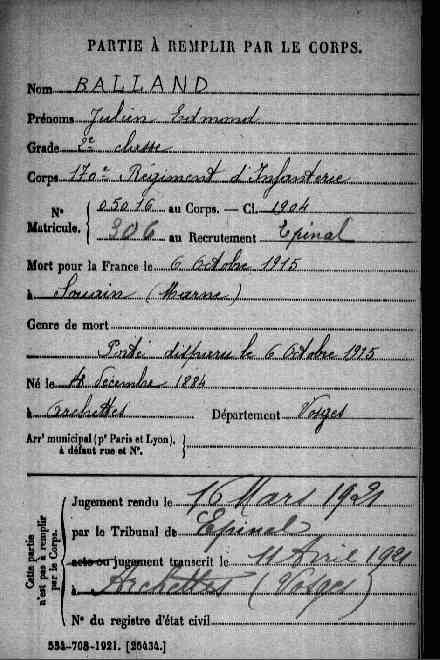 PARTIE À REMPLIR PAR LE CORPS.
Nom BALLAND
Prénoms Julien Edmond
Grade 2e classe
Corps 170e Régiment d'Infanterie
N° Matricule. { 05016 au Corps. — Cl. 1904
906 au Recrutement Epinal
Mort pour la France le 6 Octobre 1915
à Souain (Marne)
Genre de mort
Porté disparu le 6 Octobre 1915
Né le décembre 1884
à Archettes Département Vosges
Arrt municipal (pr Paris et Lyon), à défaut rue et N°. }
Cette partie n'est pas à remplir par le Corps.
Jugement rendu le 16 Mars 1921
par le Tribunal de Epinal
acte ou jugement transcrit le 11 Avril 1921
à Archettes (Vosges)
N° du registre d'état civil
534-708-1921. [26434.]